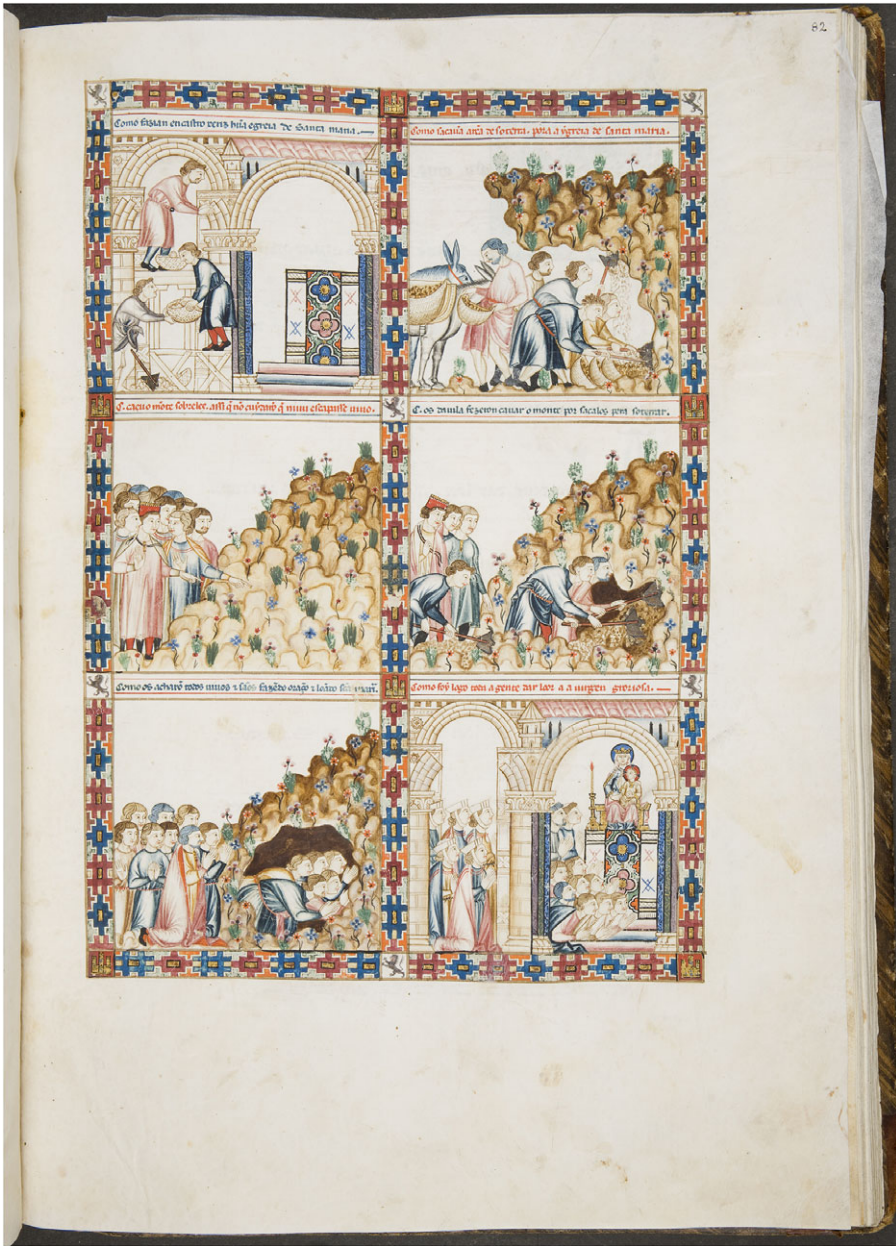 82
Como fazian en castro xeriz hũa egreia de Santa maria.
Como sacauã area de soterra. pora a ygreia de santa maria.
C. caeu o mõte sobreles. assi q̃ nõ cuydarõ q̃ niũu escapasse uiuo.
C. os da uila fezeron cauar o monte por sacalos pera soterrar.
Como os acharõ todos uiuos ⁊ sãos fazẽdo oraçõ ⁊ loãdo
Como foy logo toda a gente dar loor a a uirgen groriosa.